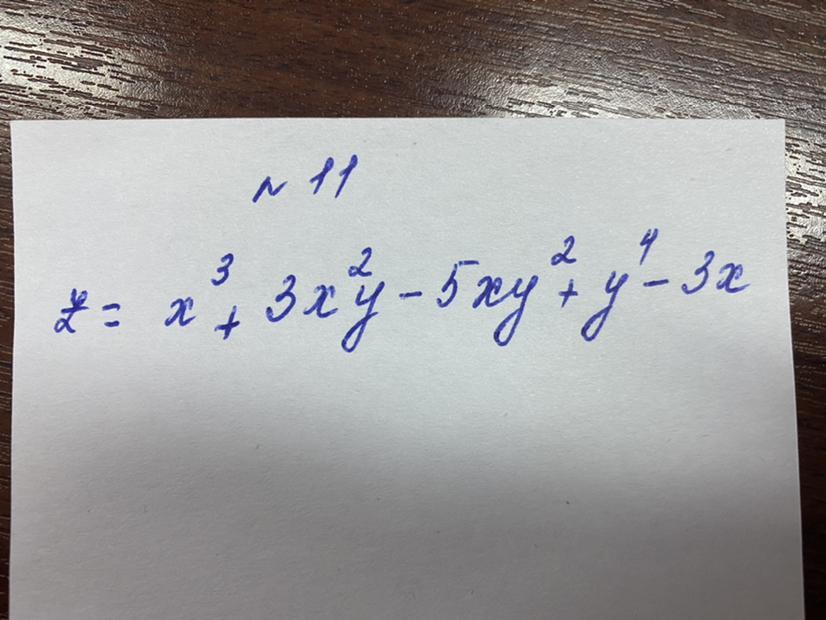 № 11
z = x³ + 3x²y - 5xy² + y⁴ - 3x